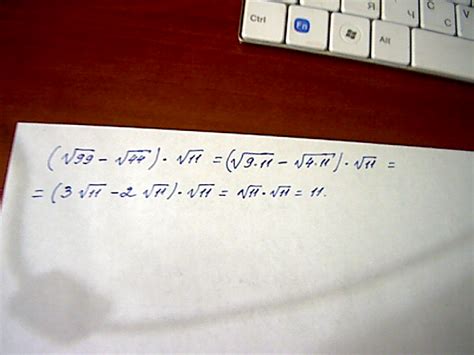 Ctrl
Fn
Alt
Я
Ч
С
(√99 - √44) · √11 = (√9·11 - √4·11) · √11 =
= (3√11 - 2√11) · √11 = √11 · √11 = 11.